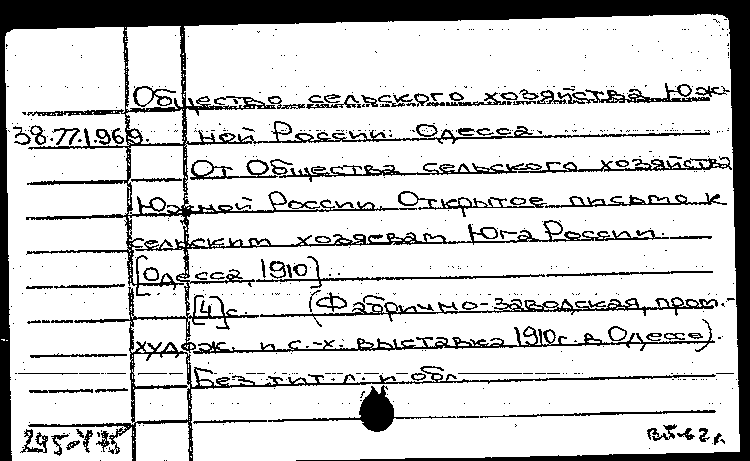 Общество сельского хозяйства Юж-
38.77.1.969. ной России. Одесса.
От Общества сельского хозяйства
Южной России. Открытое письмо к
сельским хозяевам Юга России.
[Одесса, 1910].
[4] с. (Фабрично-заводская, пром.-
худож. и с.-х. выставка 1910 г. в Одессе).
Без тит. л. и обл.